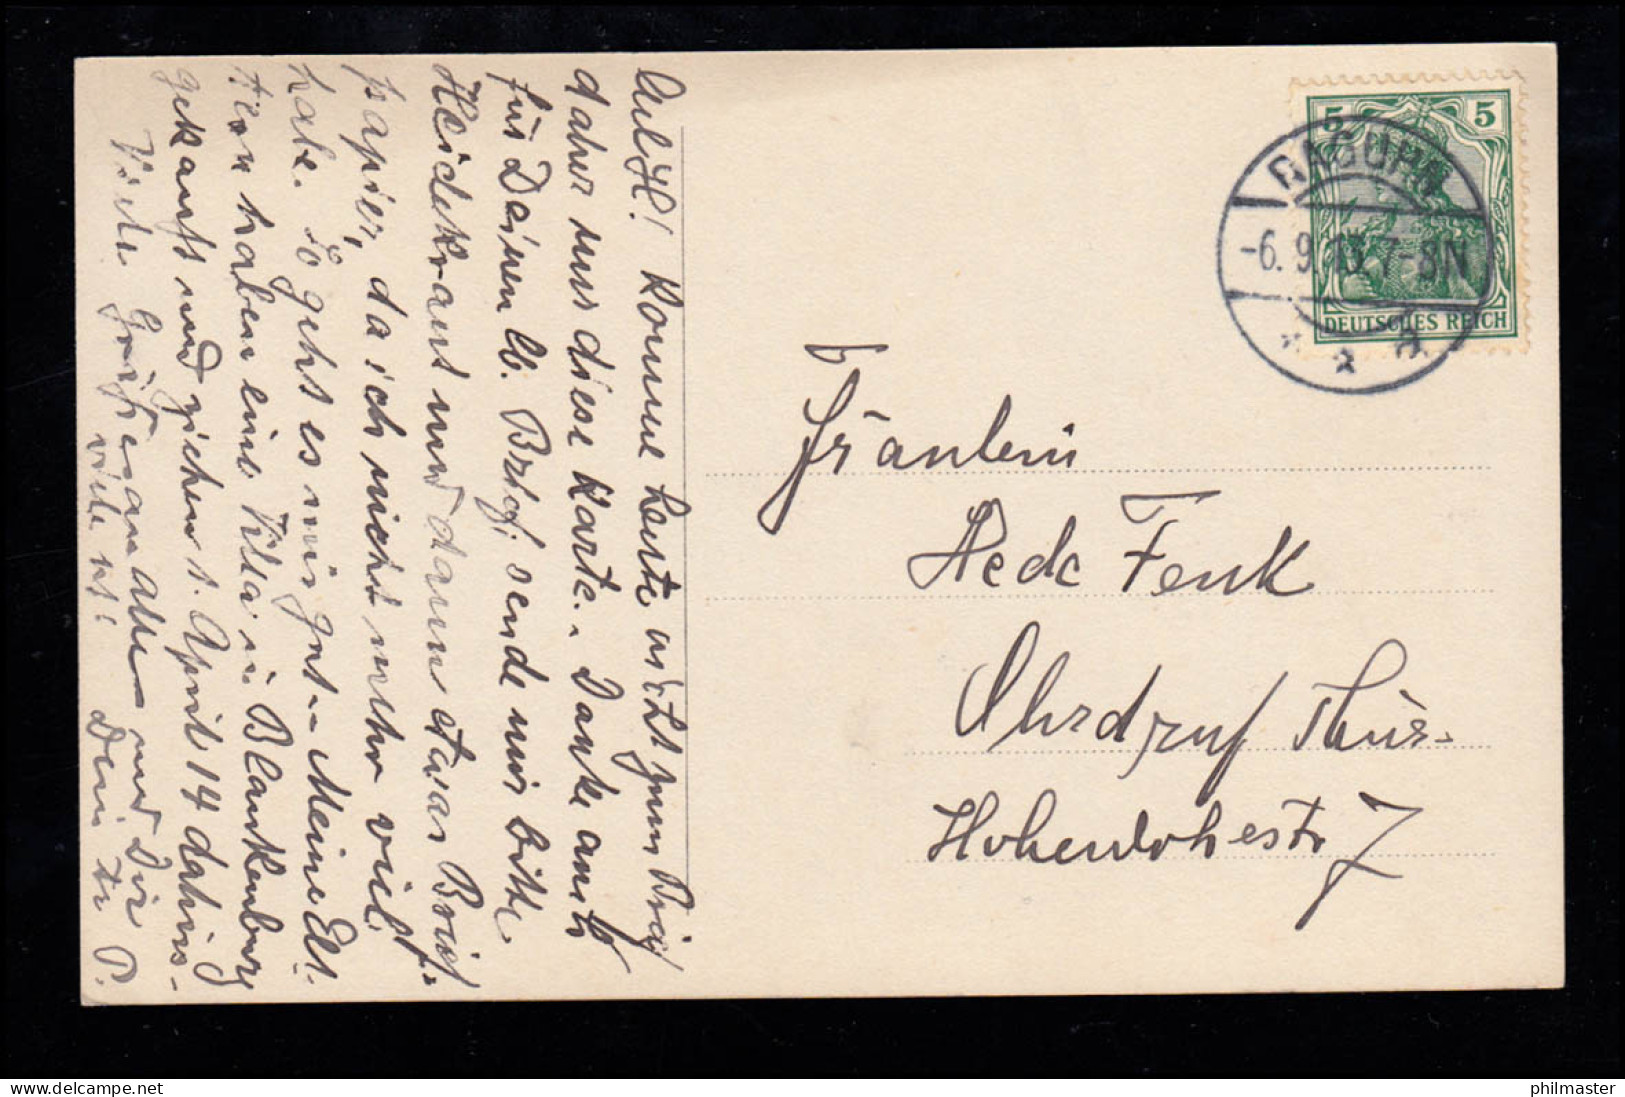 Lul. H! Komme heute nicht zum Brief
daher nur diese Karte. Danke auch
für Deinen lb. Brief. sende mir bitte
Heidekraut und dann etwas Brief-
papier, da ich nicht mehr viel
habe. So geht es mir gut. Meine Elt-
tern haben eine Villa in Blankenburg
gekauft und ziehen 1. April 14 dahin
Viele Grüße an alle und Dir
viele ns! Dein tr P.
RAGUHN
-6. 9. 13. 7-8N
* * a.
5 5
DEUTSCHES REICH
Fräulein
Hede Fenk
Ohrdruf Thür.
Hohenlohestr 7
philmaster
delcampe.net